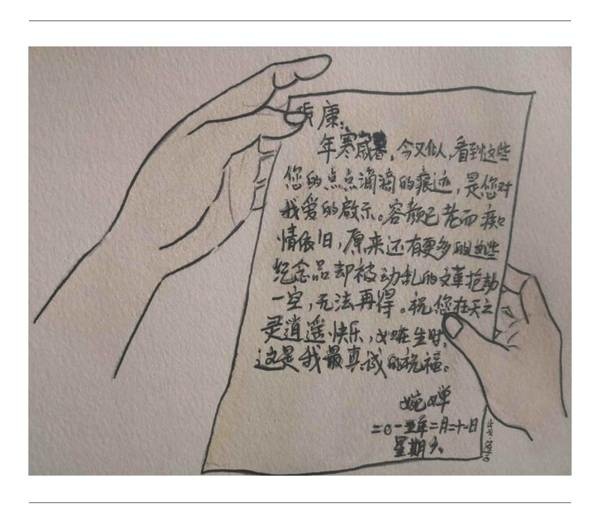 贵康:
年寒岁暮,今又似人,看到这些
您的点点滴滴的痕迹,是您对
我爱的启示。容颜已老而痴心
情依旧,原来还有更多的这些
纪念品却被动乱的文革抢劫
一空,无法再得。祝您在天之
灵逍遥快乐,如在生时,
这是我最真诚的祝福。
婉婵
二〇一五年二月二十一日
星期六